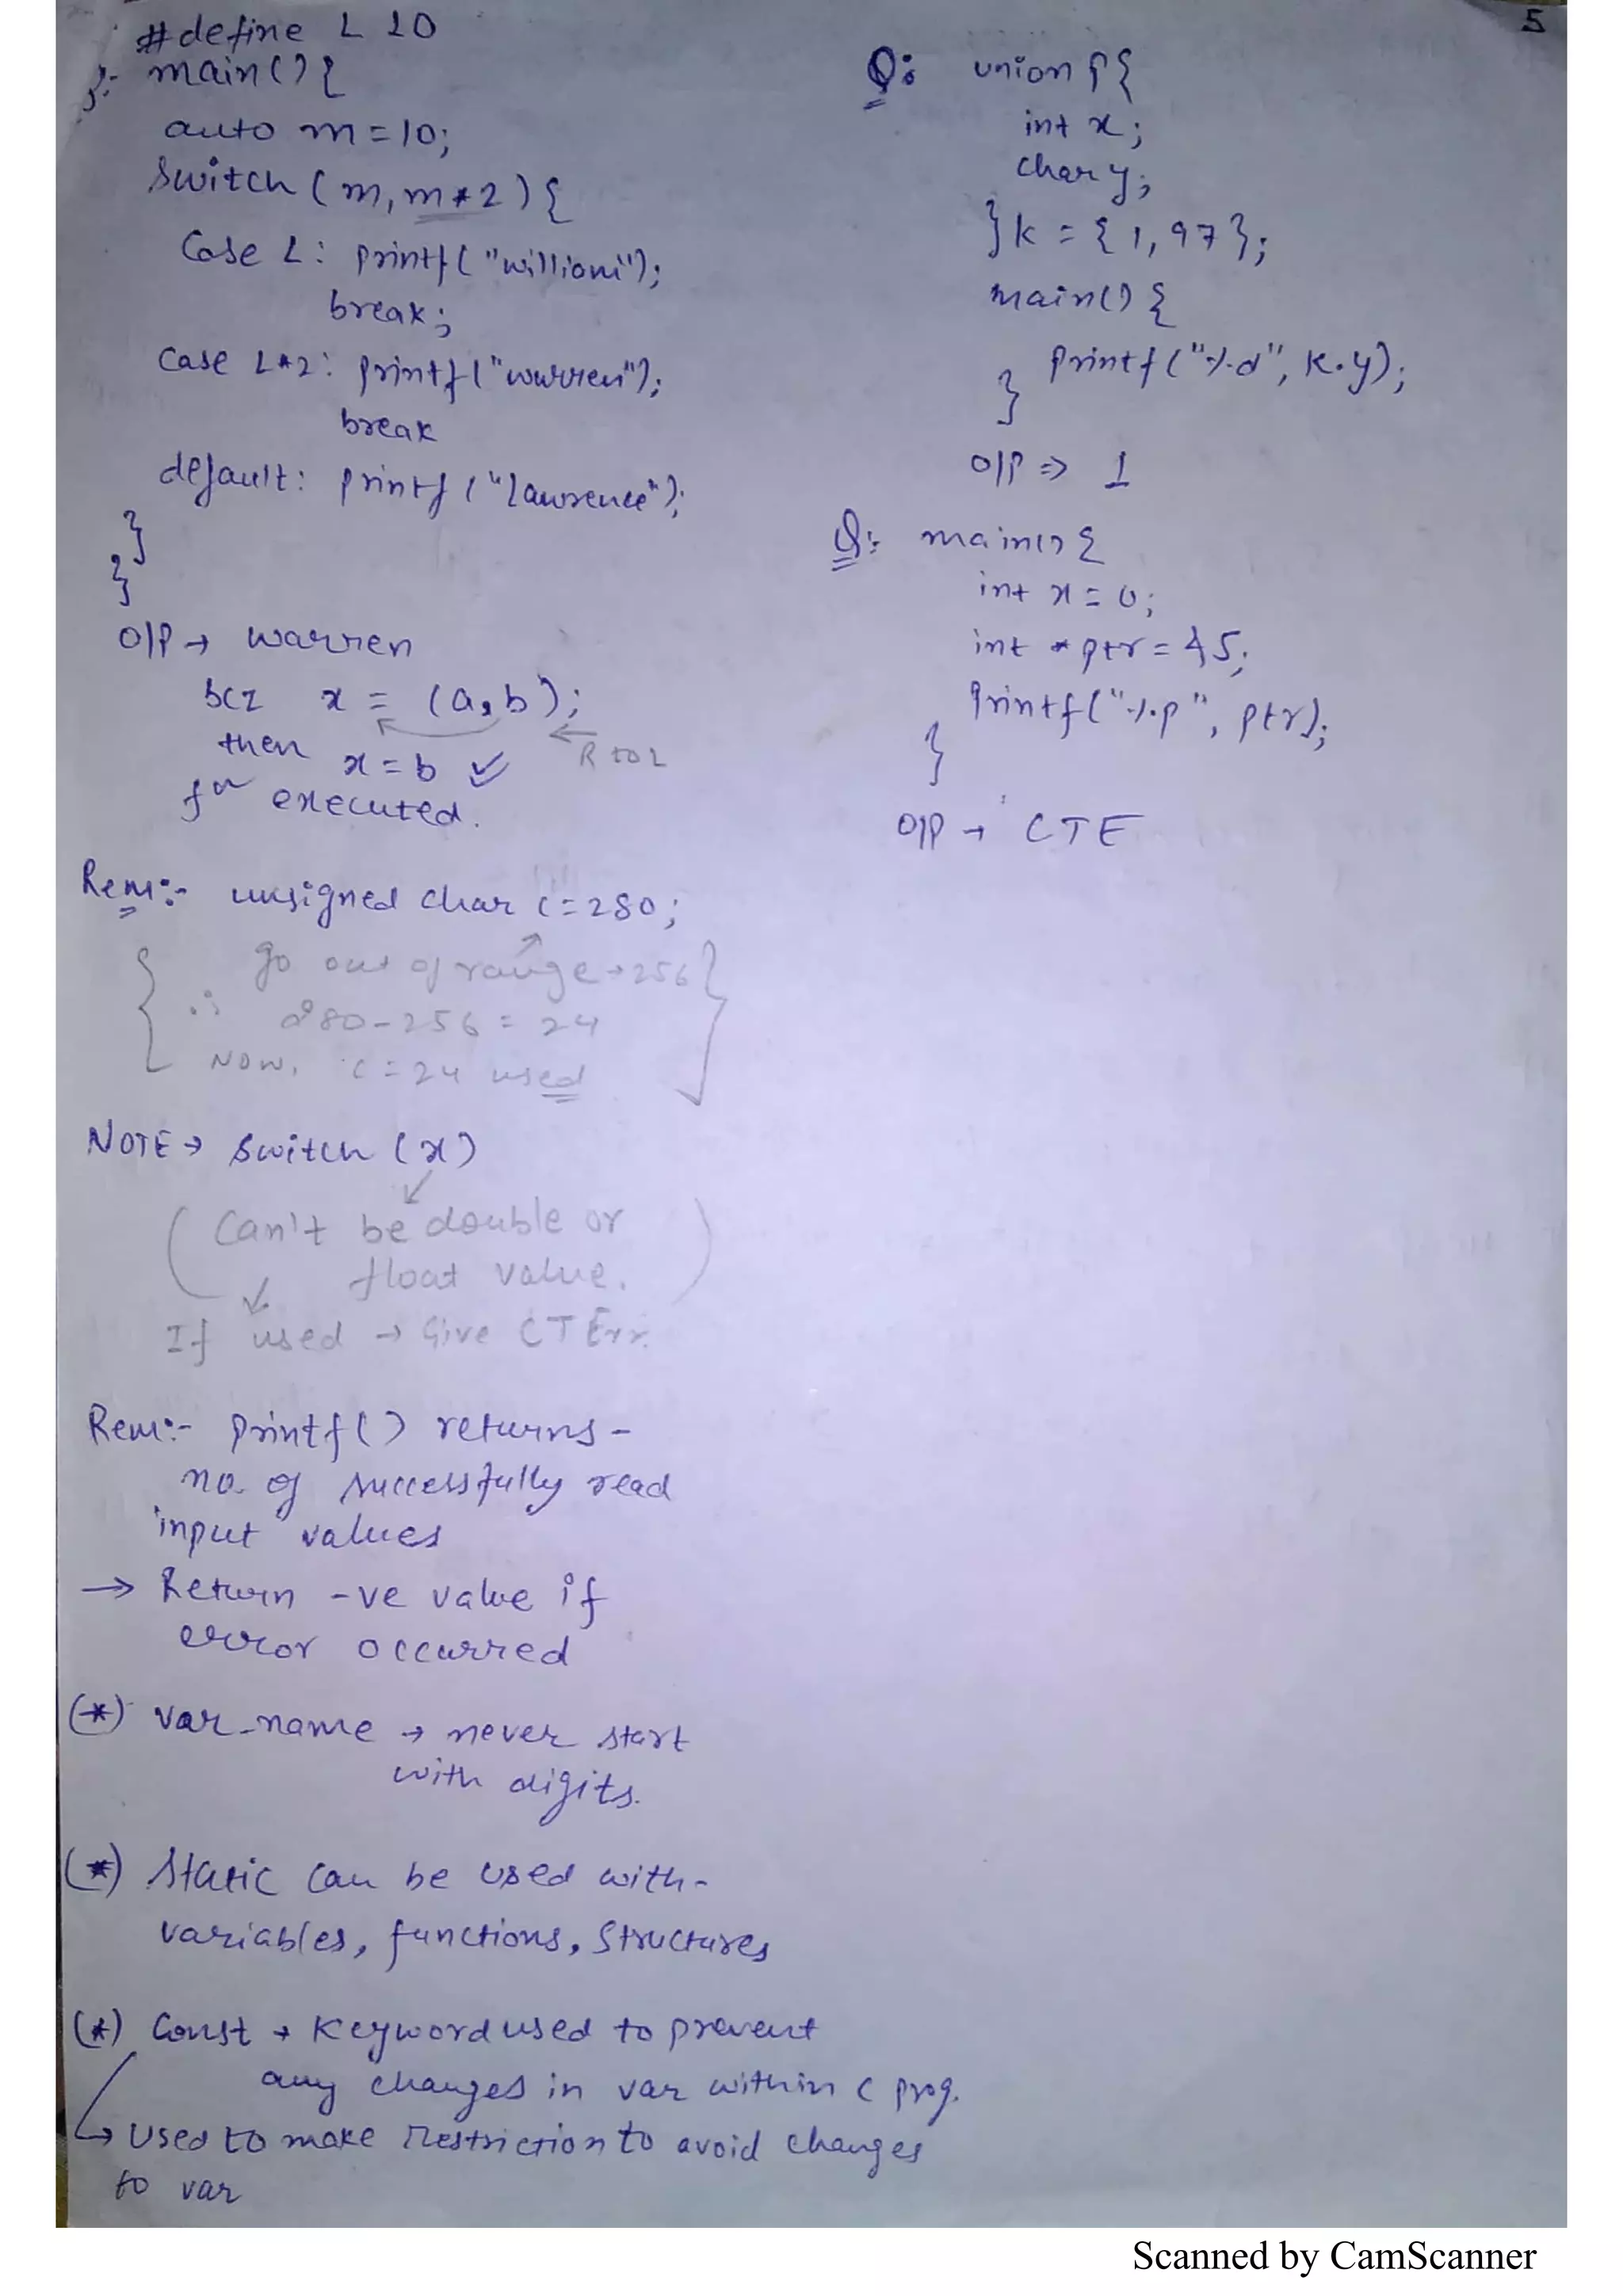 5
#define L 10
main(){
auto m=10;
switch(m,m*2){
Case L: printf("william");
break;
Case L*2: printf("warren");
break
default: printf("lawrence");
}
}
O/P → warren
bcz x = (a,b);
R to L
then x=b ✓
executed.
Rem:- unsigned char c=280;
go out of range → 256
∴ 280-256=24
Now, c=24 used
NOTE → Switch (x)
(Can't be double or
float value.)
If used → Give CTErr.
Rem:- printf() returns-
no. of successfully read
input values
→ Return -ve value if
error occurred
(*) var_name → never start
with digits.
(*) Static can be used with-
variables, functions, Structures
(*) Const → Keyword used to prevent
any changes in var within c prog.
↳ Used to make restriction to avoid changes
to var
Q: union p{
int x;
char y;
}k = {1,97};
main(){
printf("%d", k.y);
}
O/P ⇒ 1
Q: main(){
int x=0;
int *ptr=&5;
printf("%p", ptr);
}
O/P → CTE
Scanned by CamScanner